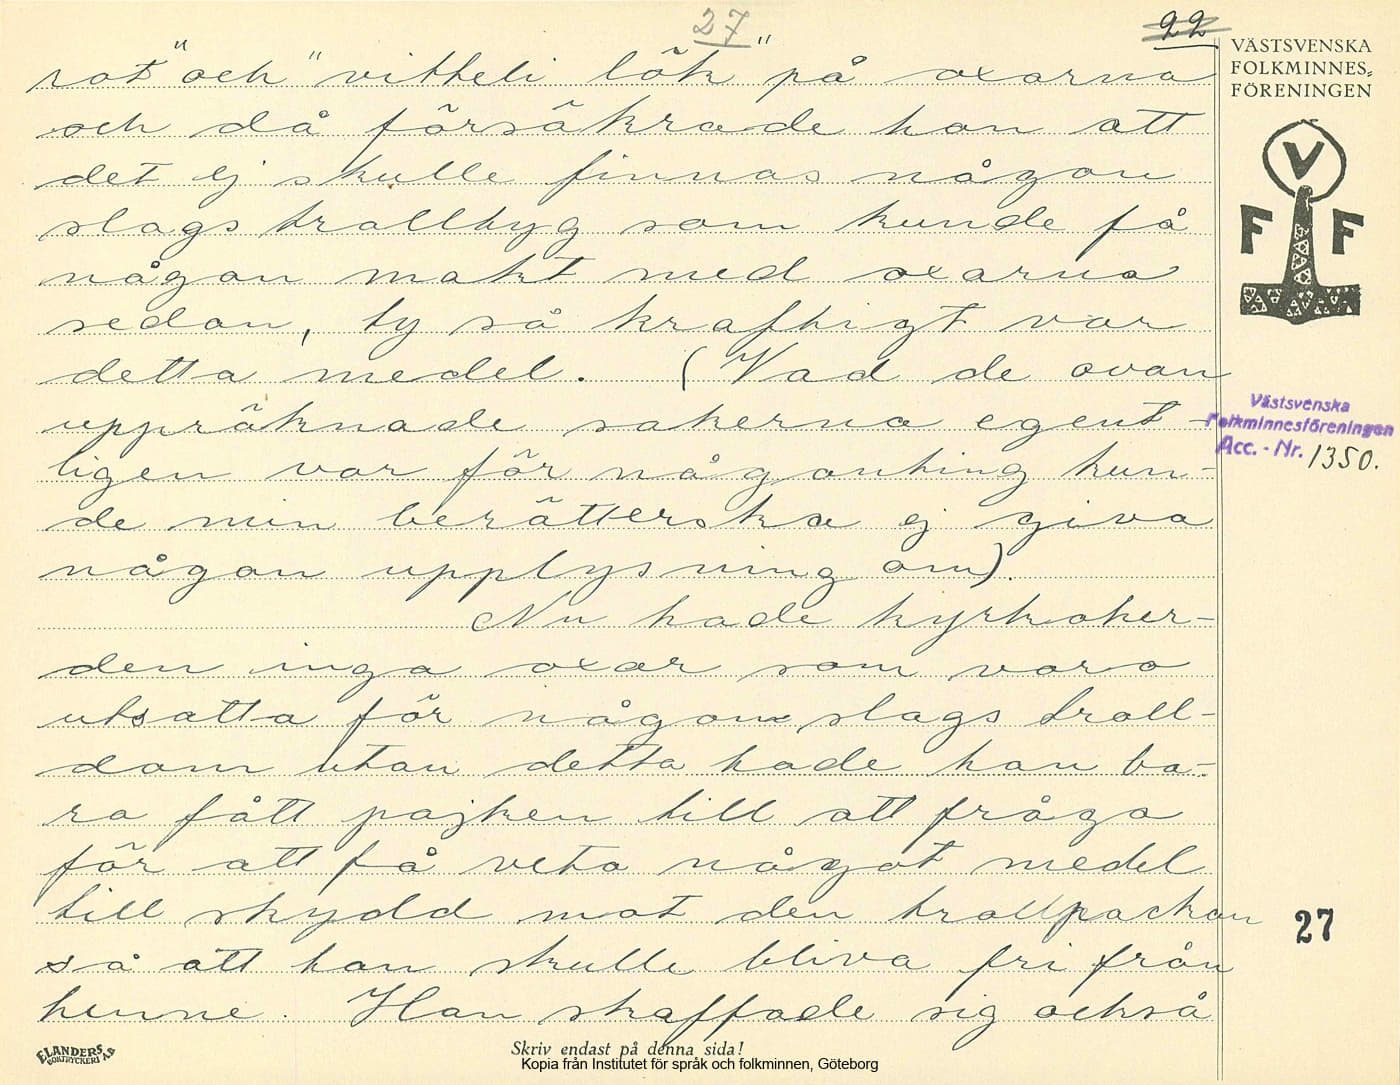 27
22
rot" och "vitteli lök" på oxarna
och då försäkrade han att
det ej skulle finnas någon
slags trolltyg som kunde få
någon makt med oxarna
sedan, ty så kraftigt var
detta medel. (Vad de ovan
uppräknade sakerna egent-
ligen var för någonting kun-
de min berätterska ej giva
någon upplysning om).
Nu hade kyrkoher-
den inga oxar som voro
utsatta för någon slags troll-
dom utan detta hade han ba-
ra fått pojken till att fråga
för att få veta något medel
till skydd mot den trollpackan
så att han skulle bliva fri från
henne. Han skaffade sig också
VÄSTSVENSKA
FOLKMINNES-
FÖRENINGEN
V
F F
Västsvenska
Folkminnesföreningen
Acc. - Nr. 1350.
27
ELANDERS
BOKTRYCKERI AB
Skriv endast på denna sida!
Kopia från Institutet för språk och folkminnen, Göteborg